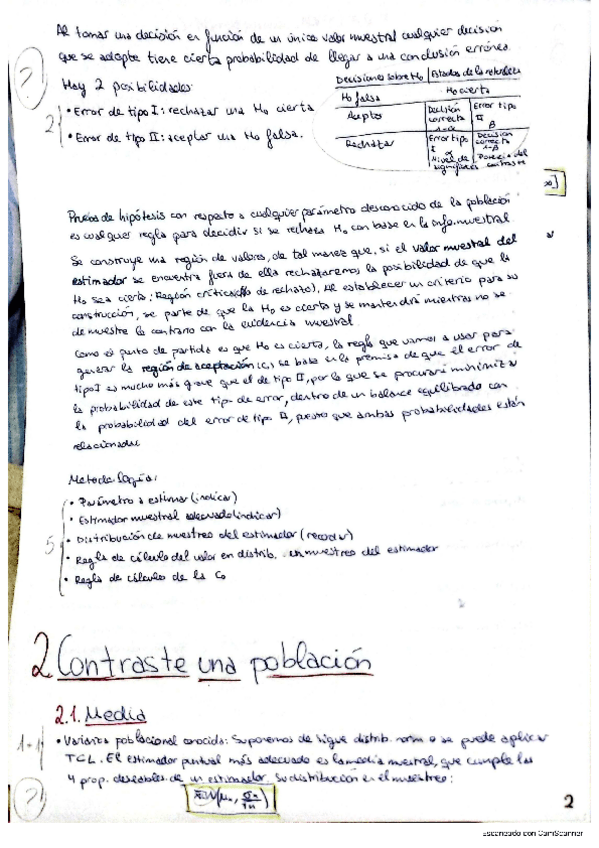 Al tomar una decisión en función de un único valor muestral cualquier decisión
que se adopte tiene cierta probabilidad de llegar a una conclusión errónea.
?
Hay 2 posibilidades:
2
• Error de tipo I: rechazar una Ho cierta
• Error de tipo II: aceptar una Ho falsa.
Decisiones sobre Ho | Estados de la naturaleza
Ho falsa
Ho cierta
Aceptar
Decisión correcta
Error tipo II
β
Rechazar
Error tipo I
Nivel de significación
Decisión correcta
1-β
Potencia del contraste
Pruebas de hipótesis con respecto a cualquier parámetro desconocido de la población
es cualquier regla para decidir si se rechaza Ho con base en la info. muestral
Se construye una región de valores, de tal manera que, si el valor muestral del
estimador se encuentra fuera de ella rechazaremos la posibilidad de que la
Ho sea cierta: Región crítica (o de rechazo). Al establecer un criterio para su
construcción, se parte de que la Ho es cierta y se mantendrá mientras no se
demuestre lo contrario con la evidencia muestral.
Como el punto de partida es que Ho es cierta, la regla que vamos a usar para
generar la región de aceptación (C₀) se basa en la premisa de que el error de
tipo I es mucho más grave que el de tipo II, por lo que se procurará minimizar
la probabilidad de este tipo de error, dentro de un balance equilibrado con
la probabilidad del error de tipo II, puesto que ambas probabilidades están
relacionadas
Metodología:
• Parámetro a estimar (indicar)
• Estimador muestral adecuado (indicar)
5
• Distribución de muestreo del estimador (recordar)
• Regla de cálculo del valor en distrib. en muestreo del estimador
• Regla de cálculo de la C₀
2. Contraste una población
2.1. Media
• Varianza poblacional conocida: Suponemos de sigue distrib. norm o se puede aplicar
TCL. El estimador puntual más adecuado es la media muestral, que cumple las
4 prop. deseables de un estimador. Su distribución en el muestreo:
?
2
Escaneado con CamScanner